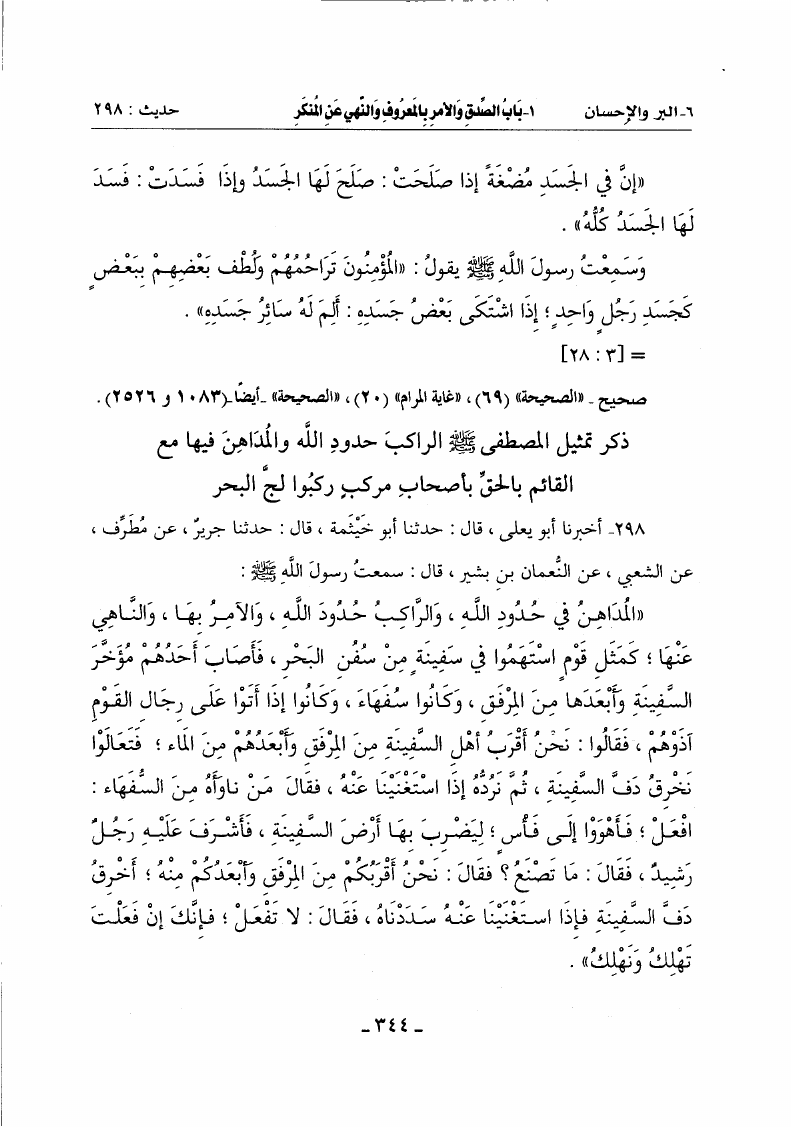 ٦- البر والإحسان ١- بَابُ الصِّدق وَالأمرِ بِالمَعرُوفِ وَالنَّهيِ عَنِ المُنكَرِ حديث : ٢٩٨
«إنَّ في الجَسَدِ مُضْغَةً إذا صَلَحَتْ : صَلَحَ لَهَا الجَسَدُ وإذَا فَسَدَتْ : فَسَدَ
لَهَا الجَسَدُ كُلُّهُ» .
وَسَمِعْتُ رسولَ اللَّهِ ﷺ يقولُ : «المُؤْمِنُونَ تَرَاحُمُهُمْ وَلُطْفُ بَعْضِهِمْ بِبَعْضٍ
كَجَسَدِ رَجُلٍ وَاحِدٍ ؛ إذَا اشْتَكَى بَعْضُ جَسَدِهِ : أَلِمَ لَهُ سَائِرُ جَسَدِهِ» .
= [٣ : ٢٨]
صحيح ـ «الصحيحة» (٦٩) ، «غاية المرام» (٢٠) ، «الصحيحة» ـ أيضًا ـ (١٠٨٣ و ٢٥٢٦) .
ذكر تمثيل المصطفى ﷺ الراكبَ حدودِ اللَّه والمُدَاهِنَ فيها مع
القائم بالحقِّ بأصحابِ مركبٍ ركِبُوا لجَّ البحر
٢٩٨ـ أخبرنا أبو يعلى ، قال : حدثنا أبو خَيْثَمة ، قال : حدثنا جريرٌ ، عن مُطَرِّف ،
عن الشعبي ، عن النُّعمان بن بشير ، قال : سمعتُ رسولَ اللَّهِ ﷺ :
«المُدَاهِنُ في حُدُودِ اللَّهِ ، وَالرَّاكِبُ حُدُودَ اللَّهِ ، وَالآمِرُ بِهَا ، وَالنَّاهِي
عَنْهَا ؛ كَمَثَلِ قَوْمٍ اسْتَهَمُوا في سَفِينَةٍ مِنْ سُفُنِ البَحْرِ ، فَأَصَابَ أَحَدُهُمْ مُؤَخَّرَ
السَّفِينَةِ وَأَبْعَدَها مِنَ المِرْفَقِ ، وَكَانُوا سُفَهَاءَ ، وَكَانُوا إذَا أَتَوْا عَلَى رِجَالِ القَوْمِ
آذَوْهُمْ ، فَقَالُوا : نَحْنُ أَقْرَبُ أهْلِ السَّفِينَةِ مِنَ المِرْفَقِ وَأَبْعَدُهُمْ مِنَ المَاءِ ؛ فَتَعَالَوْا
نَخْرِقْ دَفَّ السَّفِينَةِ ، ثُمَّ نَرُدُّهُ إذَا اسْتَغْنَيْنَا عَنْهُ ، فَقَالَ مَنْ نَاوَأَهُ مِنَ السُّفَهَاءِ :
افْعَلْ ؛ فَأَهْوَوْا إلَى فَأْسٍ ؛ لِيَضْرِبَ بِهَا أَرْضَ السَّفِينَةِ ، فَأَشْرَفَ عَلَيْهِ رَجُلٌ
رَشِيدٌ ، فَقَالَ : مَا تَصْنَعُ ؟ فَقَالَ : نَحْنُ أَقْرَبُكُمْ مِنَ المِرْفَقِ وَأَبعَدُكُمْ مِنْهُ ؛ أَخْرِقُ
دَفَّ السَّفِينَةِ فَإذَا اسْتَغْنَيْنَا عَنْهُ سَدَدْنَاهُ ، فَقَالَ : لا تَفْعَلْ ؛ فَإنَّكَ إنْ فَعَلْتَ
تَهْلِكُ وَنَهْلِكُ» .
ـ ٣٤٤ ـ